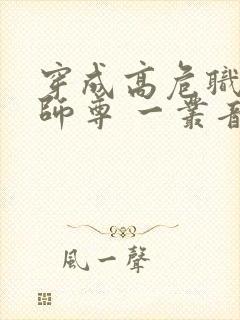 穿成高危職
師尊 一叢音
風一聲